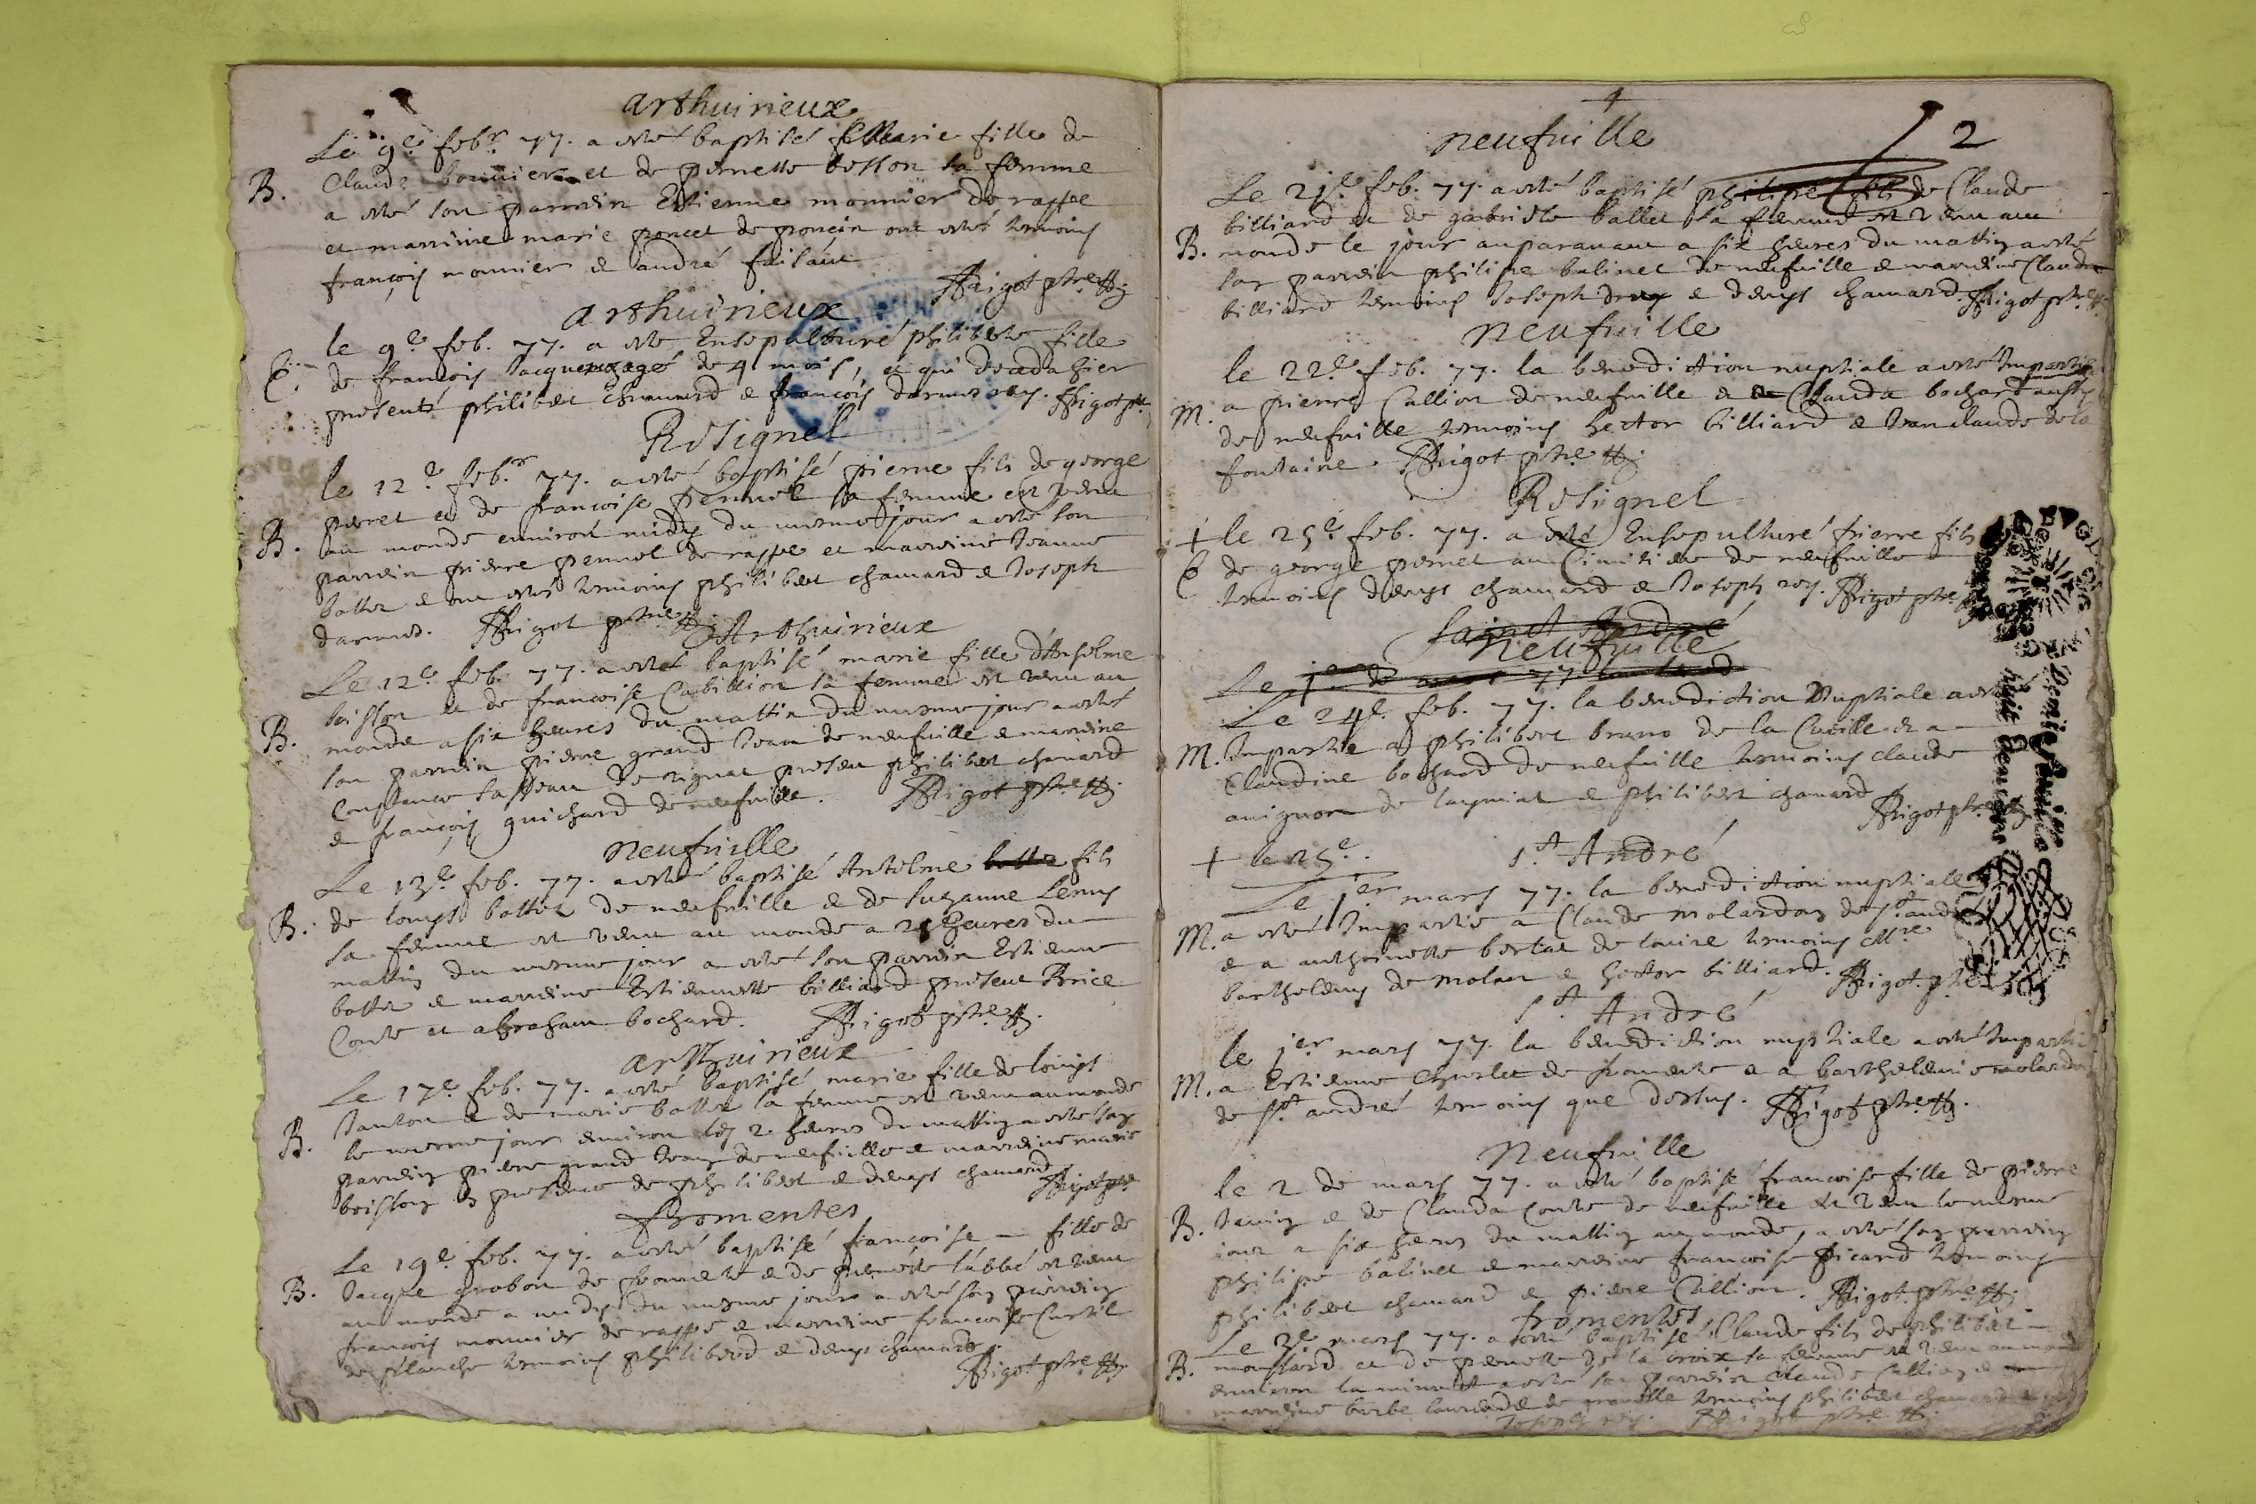 arthuirieux
Le 9e febr 77. a esté baptisée Marie fille de
B. Claude monnier et de pernette besson sa femme
a esté son parrein Estienne monnier de rasse
et marrine marie poncet de poncin ont esté temoins
françois monnier et andré faisant
Rigot ptre
arthuirieux
le 9e feb. 77. a esté Ensepulturé philiberte fille
de françois Jacquemet agé de 4 mois, et qui deceda hier
presents philibert chamard e françois darmes. Rigot ptre
Rosignel
le 12e febr 77. a esté baptisé pierre fils de george
perret et de françoise pennel sa femme est venu
B. au monde environ midy du mesme jour a esté son
parrein pierre pennel de rasse et marreine Jeanne
botter e ont estés temoins philibert chamard e Joseph
darmes. Rigot ptre
Arthuirieux
Le 12e feb. 77. a esté baptisé marie fille d'Anselme
boisson et de francoise Cubillion sa femme est venu au
B. monde a six heures du mattin du mesme jour a esté
son parrein pierre grand Jean de neufuille e marreine
Constance de rignat present philibert chamard
e françois guichard de neufuille. Rigot ptre
neufuille
Le 13e. feb. 77. a esté baptisé Antelme botter fils
B. de Louys botter de neufuille e de Suzanne
sa femme est venu au monde a 2 heures du
mattin du mesme jour a esté son parrein Estienne
botter e marreine Estiennette billiard present Brice
Conte et abraham bochard. Rigot ptre
arthuirieux
Le 17e feb. 77. a esté baptisé marie fille de louys
B. Janton e de marie botter sa femme est venu au monde
le mesme jour environ les 2 heures du mattin a esté son
parrein pierre grand Jean de neufuille e marreine marie
boisson en presence de philibert e denys chamard Rigot ptre
fromentes
Le 19e feb. 77. a esté baptisé françoise fille de
B. Jacque grobon de fromente e de pernette l'abbé est venu
au monde a midy du mesme jour a esté son parrein
françois monnier de rasse e marreine francoise Curtil
de planche temoins philiberd e denys chamard.
Rigot ptre
2
neufuille
Le 21e feb. 77. a esté baptisé philipe fils de Claude
billiard et de gabrielle ballet sa femme est venu au
B. monde le jour auparavant a six heures du mattin a esté
son parrein philipe balivet de neufuille e marreine Claudine
billiard temoins Joseph drey e denys chamard. Rigot ptre
neufuille
le 22e feb. 77. la benediction nuptiale a esté Impartie
M. a pierre Callion de neufuille e Clauda bochard aussy
de neufuille temoins hector billiard e Jean claude de la
fontaine. Rigot ptre
Rosignel
+ le 25e feb. 77. a esté Ensepulturé pierre fils
de george perret au Cimitiere de neufuille
temoins denys chamard e Joseph rey. Rigot ptre
Sainct André
Neufuille
Le 1er de mars 77
Le 24e. feb. 77. la benediction Nuptiale a esté
M. Impartie a philibert bruno de la Cueille et a
Claudine bochard de neufuille temoins claude
auignon de e philibert chamard
Rigot ptre
+ le 25e.
St André
Le 1er mars 77. la benediction nuptialle
M. a esté Impartie a Claude molardoz de St andré
e a anthoinette bertat de temoins Mre
barthelemy de molan e hector billiard. Rigot ptre
St André
le 1er mars 77. la benediction nuptiale a esté Impartie
M. a Estienne de fromente e a barthelemie molardoz
de St. andré temoins que dessus. Rigot ptre
Neufuille
le 2 de mars 77. a esté baptisé françoise fille de pierre
B. e de Clauda Conte de neufuille est venu le mesme
jour a six heures du mattin au monde, a esté son parrein
philipe balivet e marreine francoise Picard temoins
philibert chamard e pierre Callion. Rigot ptre
fromentes
Le 3e mars 77. a esté baptisé Claude fils de philibert
B. et de pernette de la croix sa femme est venu au monde
environ la minuit a esté son parrein Claude
marreine temoins philibert chamard
Joseph rey. Rigot ptre